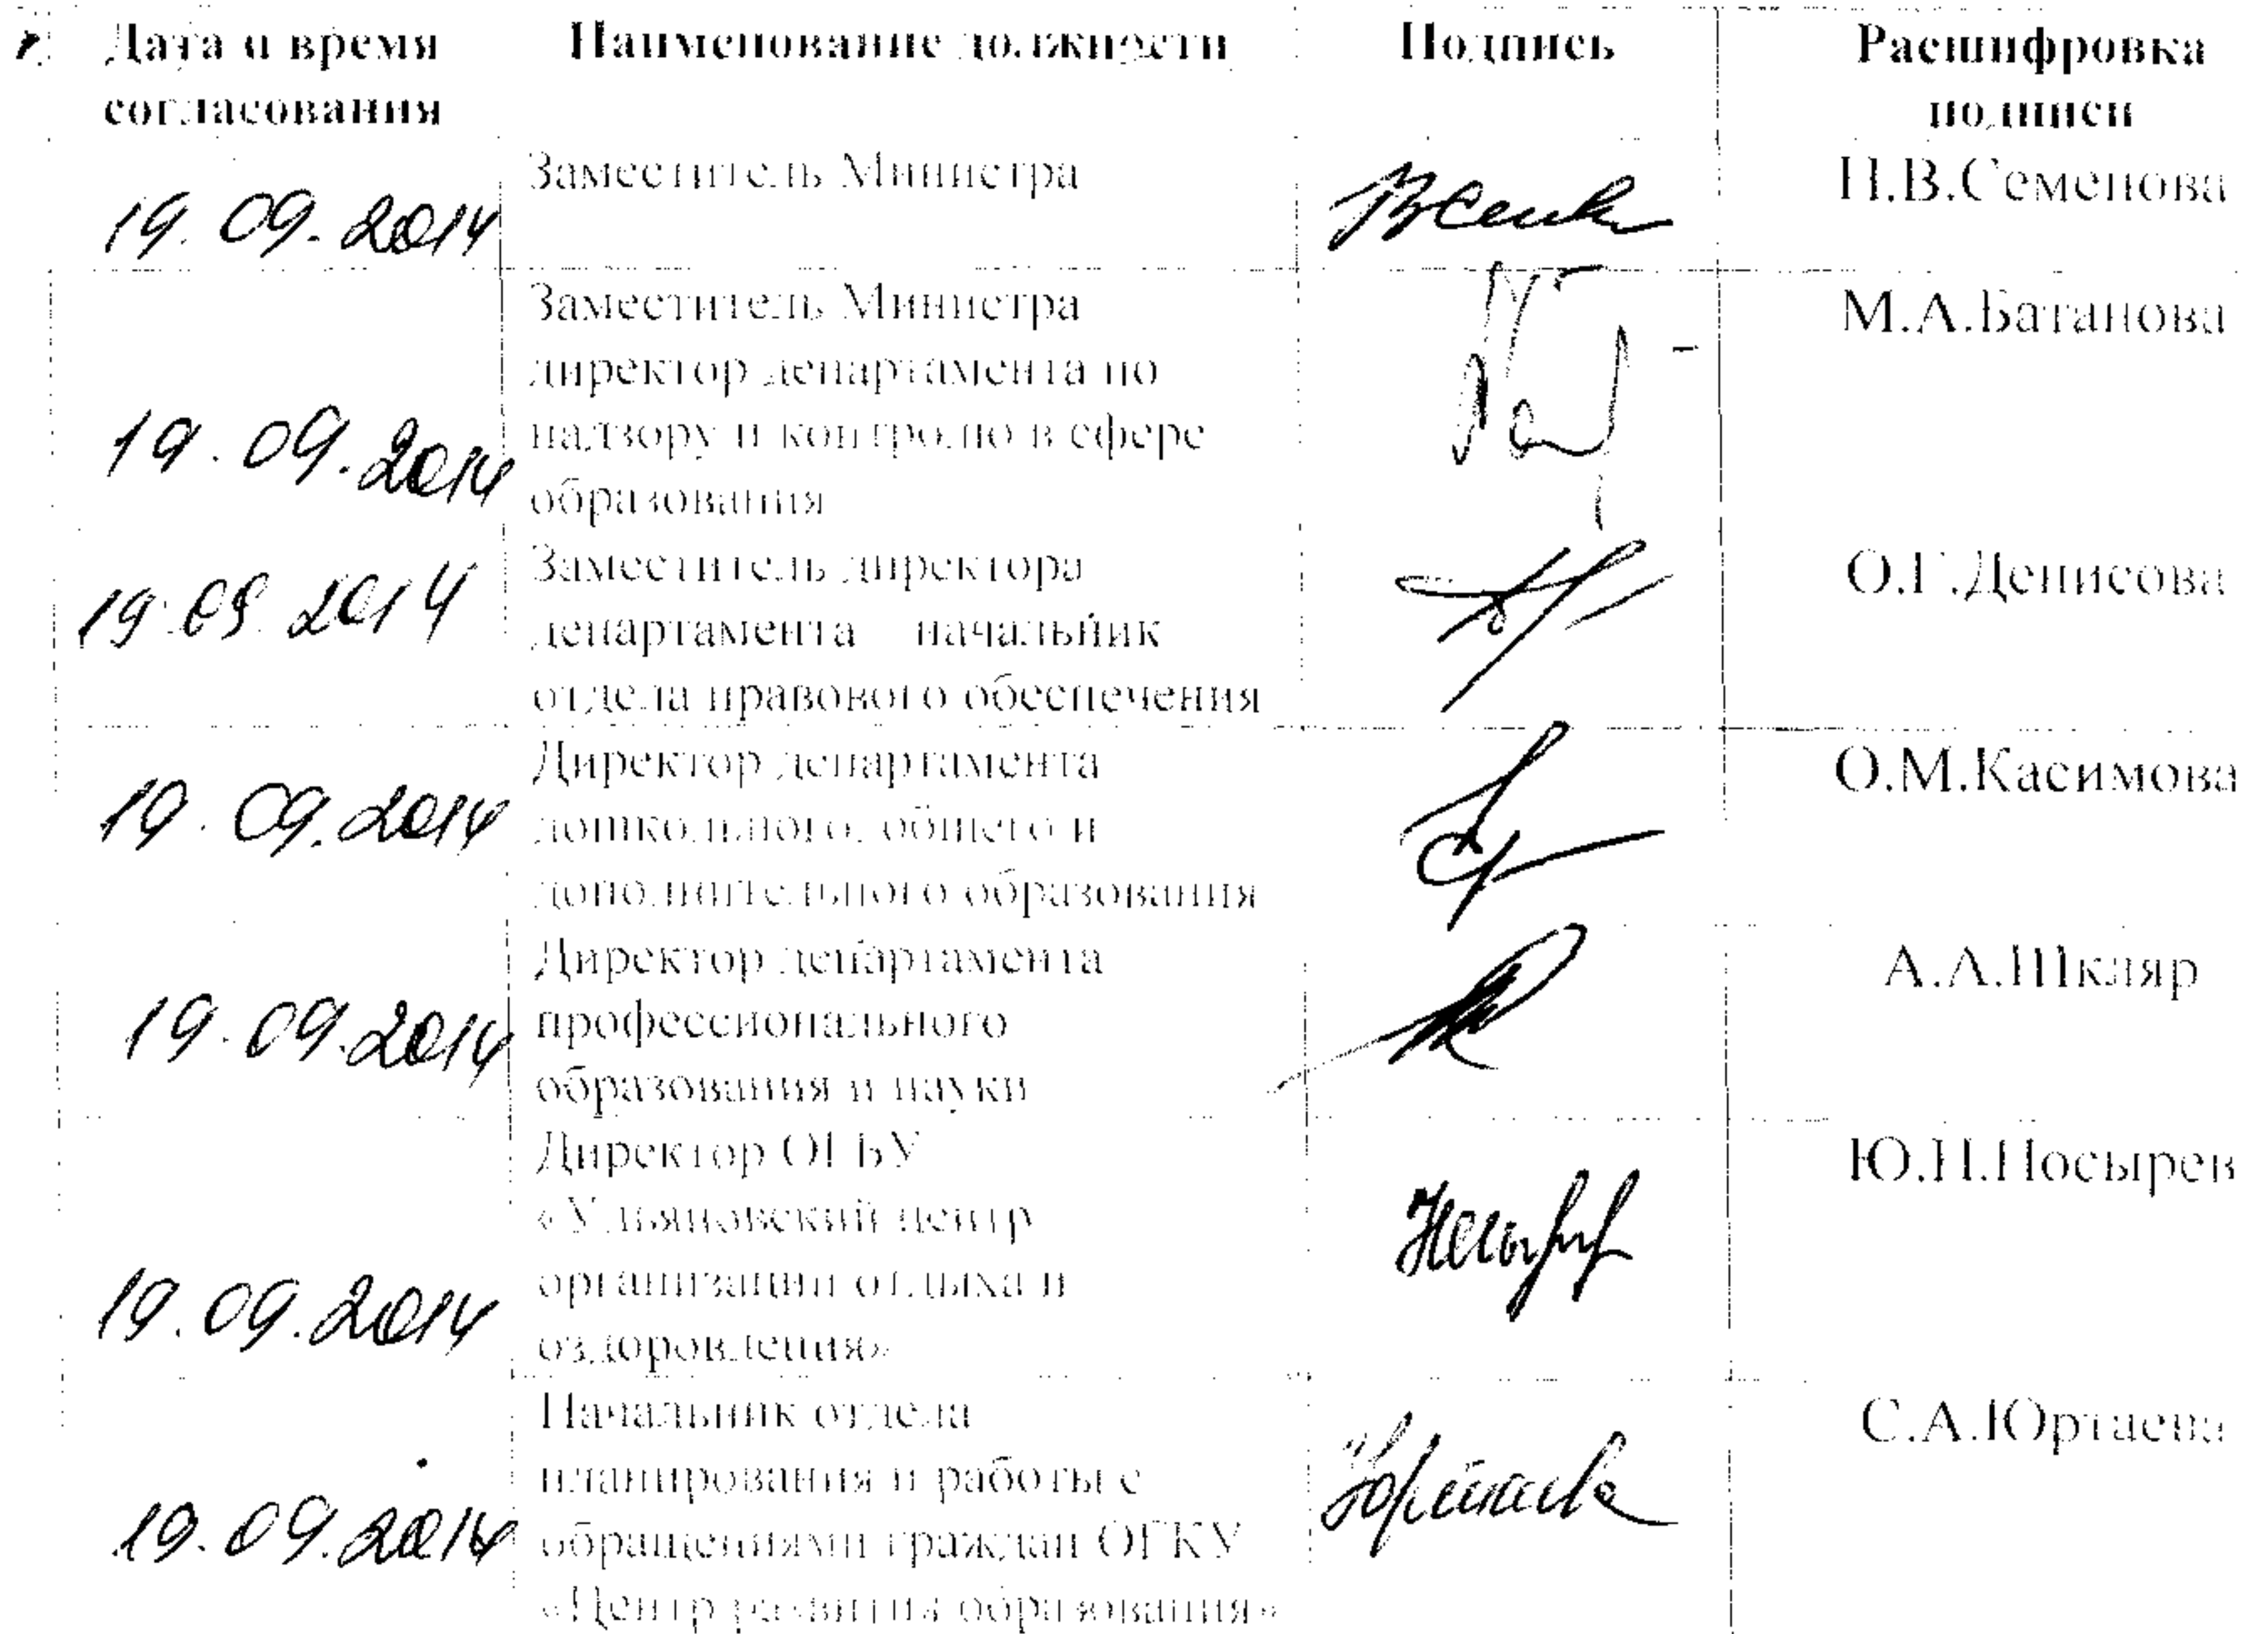 Дата и время
согласования
Наименование должности
Подпись
Расшифровка
подписи
19.09.2014
Заместитель Министра
Н.В.Семенова
19.09.2014
Заместитель Министра
директор департамента по
надзору и контролю в сфере
образования
М.А.Батанова
19.09.2014
Заместитель директора
департамента начальник
отдела правового обеспечения
О.Г.Денисова
19.09.2014
Директор департамента
дошкольного, общего и
дополнительного образования
О.М.Касимова
19.09.2014
Директор департамента
профессионального
образования и науки
А.А.Шкляр
19.09.2014
Директор ОГБУ
«Ульяновский центр
организации отдыха и
оздоровления»
Ю.Н.Носырев
19.09.2014
Начальник отдела
планирования и работы с
обращениями граждан ОГКУ
«Центр развития образования»
С.А.Юртаева